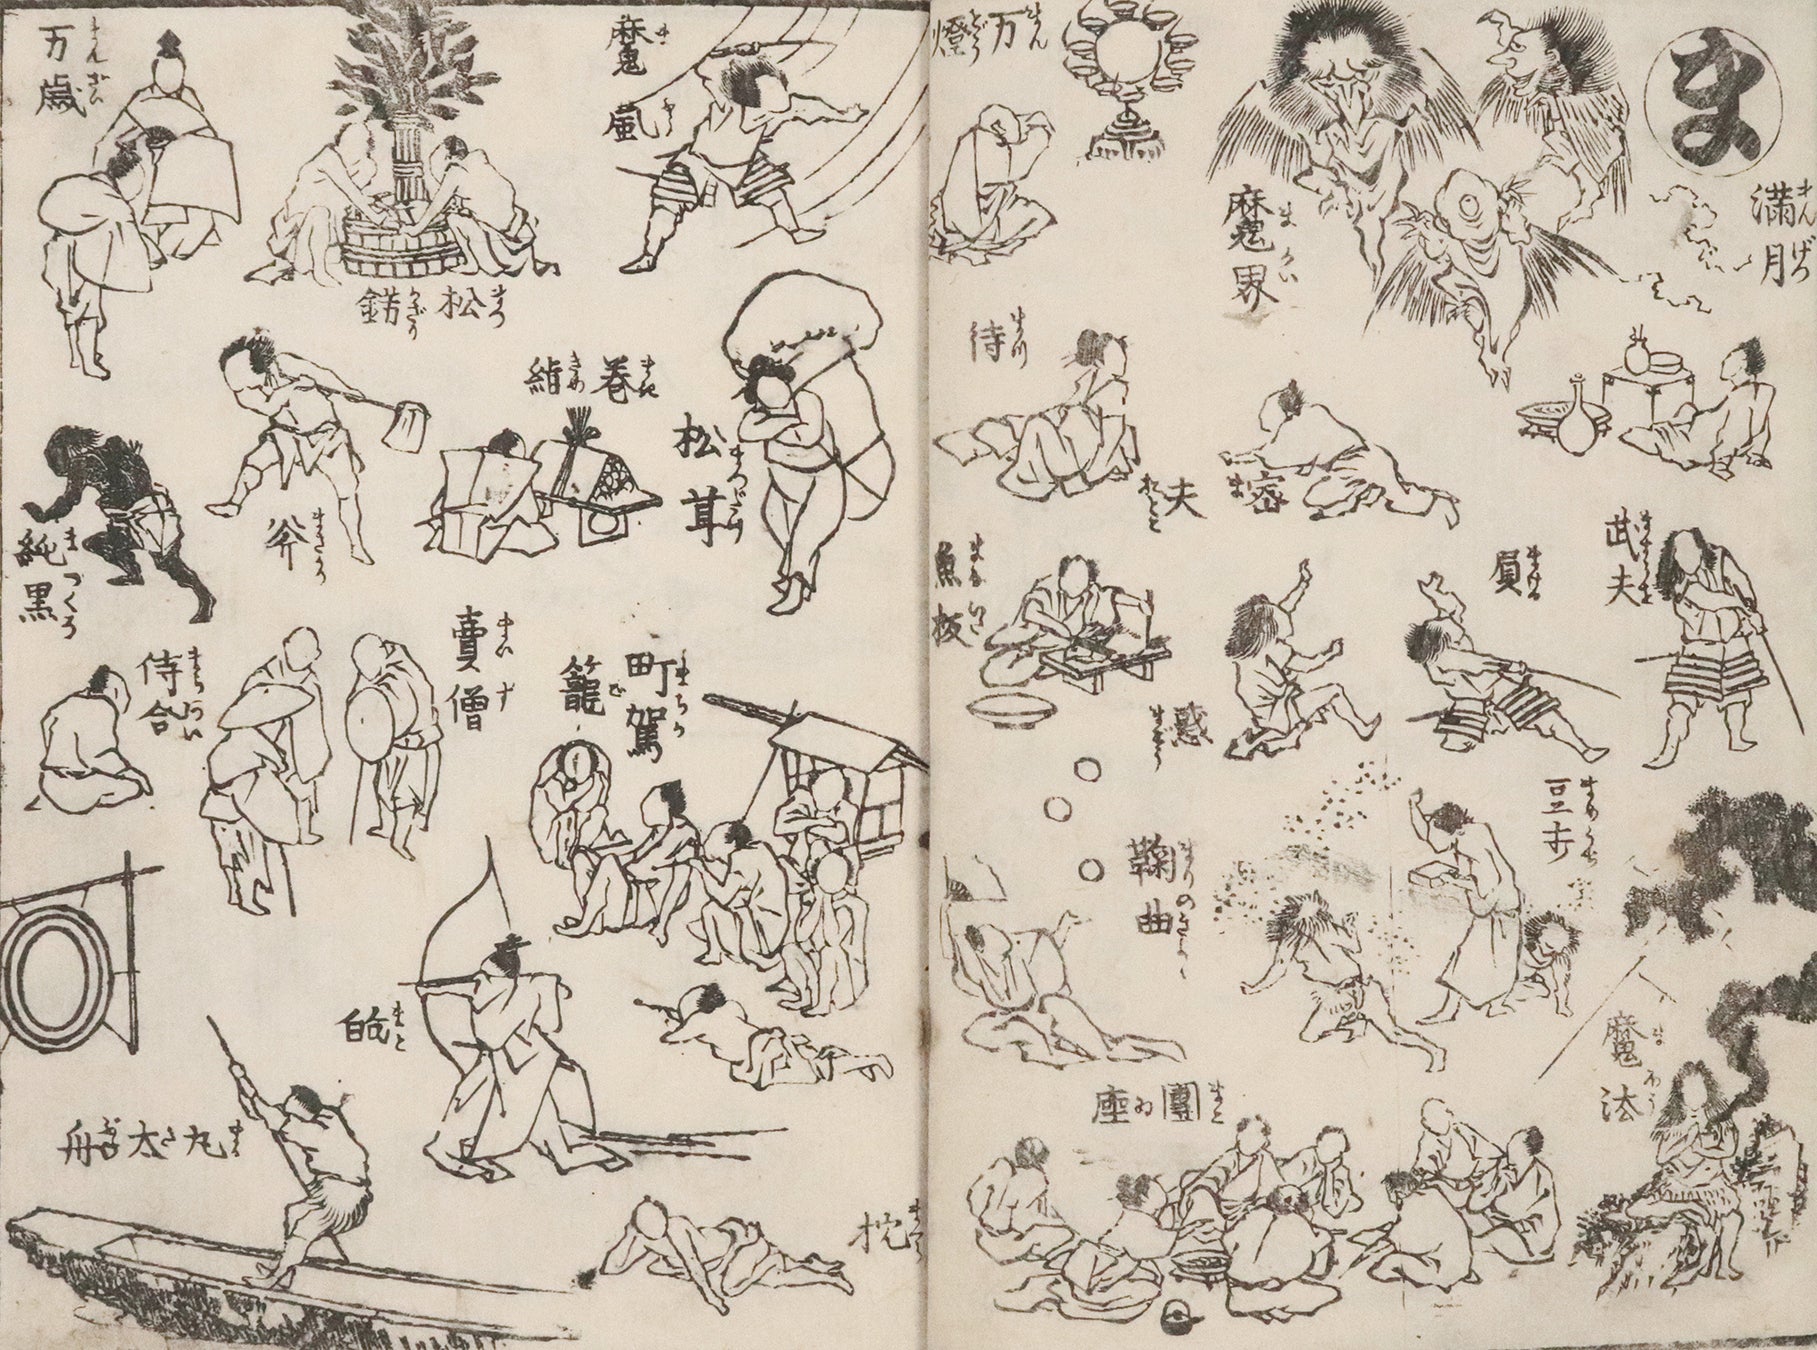 ま
満月 まんげつ
魔界 まかい
万燈 まんどう
武夫 ますらを
負 まける
密夫 まをとこ
待 まつ
豆打 まめうち
惑 まどう
魚板 まないた
鞠曲 まりのきょく
魔法 まほう
團座 まとゐ
魔風 まふう
松錺 まつかざり
万歳 まんざい
松茸 まつだけ
巻絹 まきぎぬ
斧 まさかり
純黒 まつくろ
町駕籠 まちかご
賣僧 まいす
待合 まちあい
的 まと
丸太舟 まるたぶね
枕 まくら